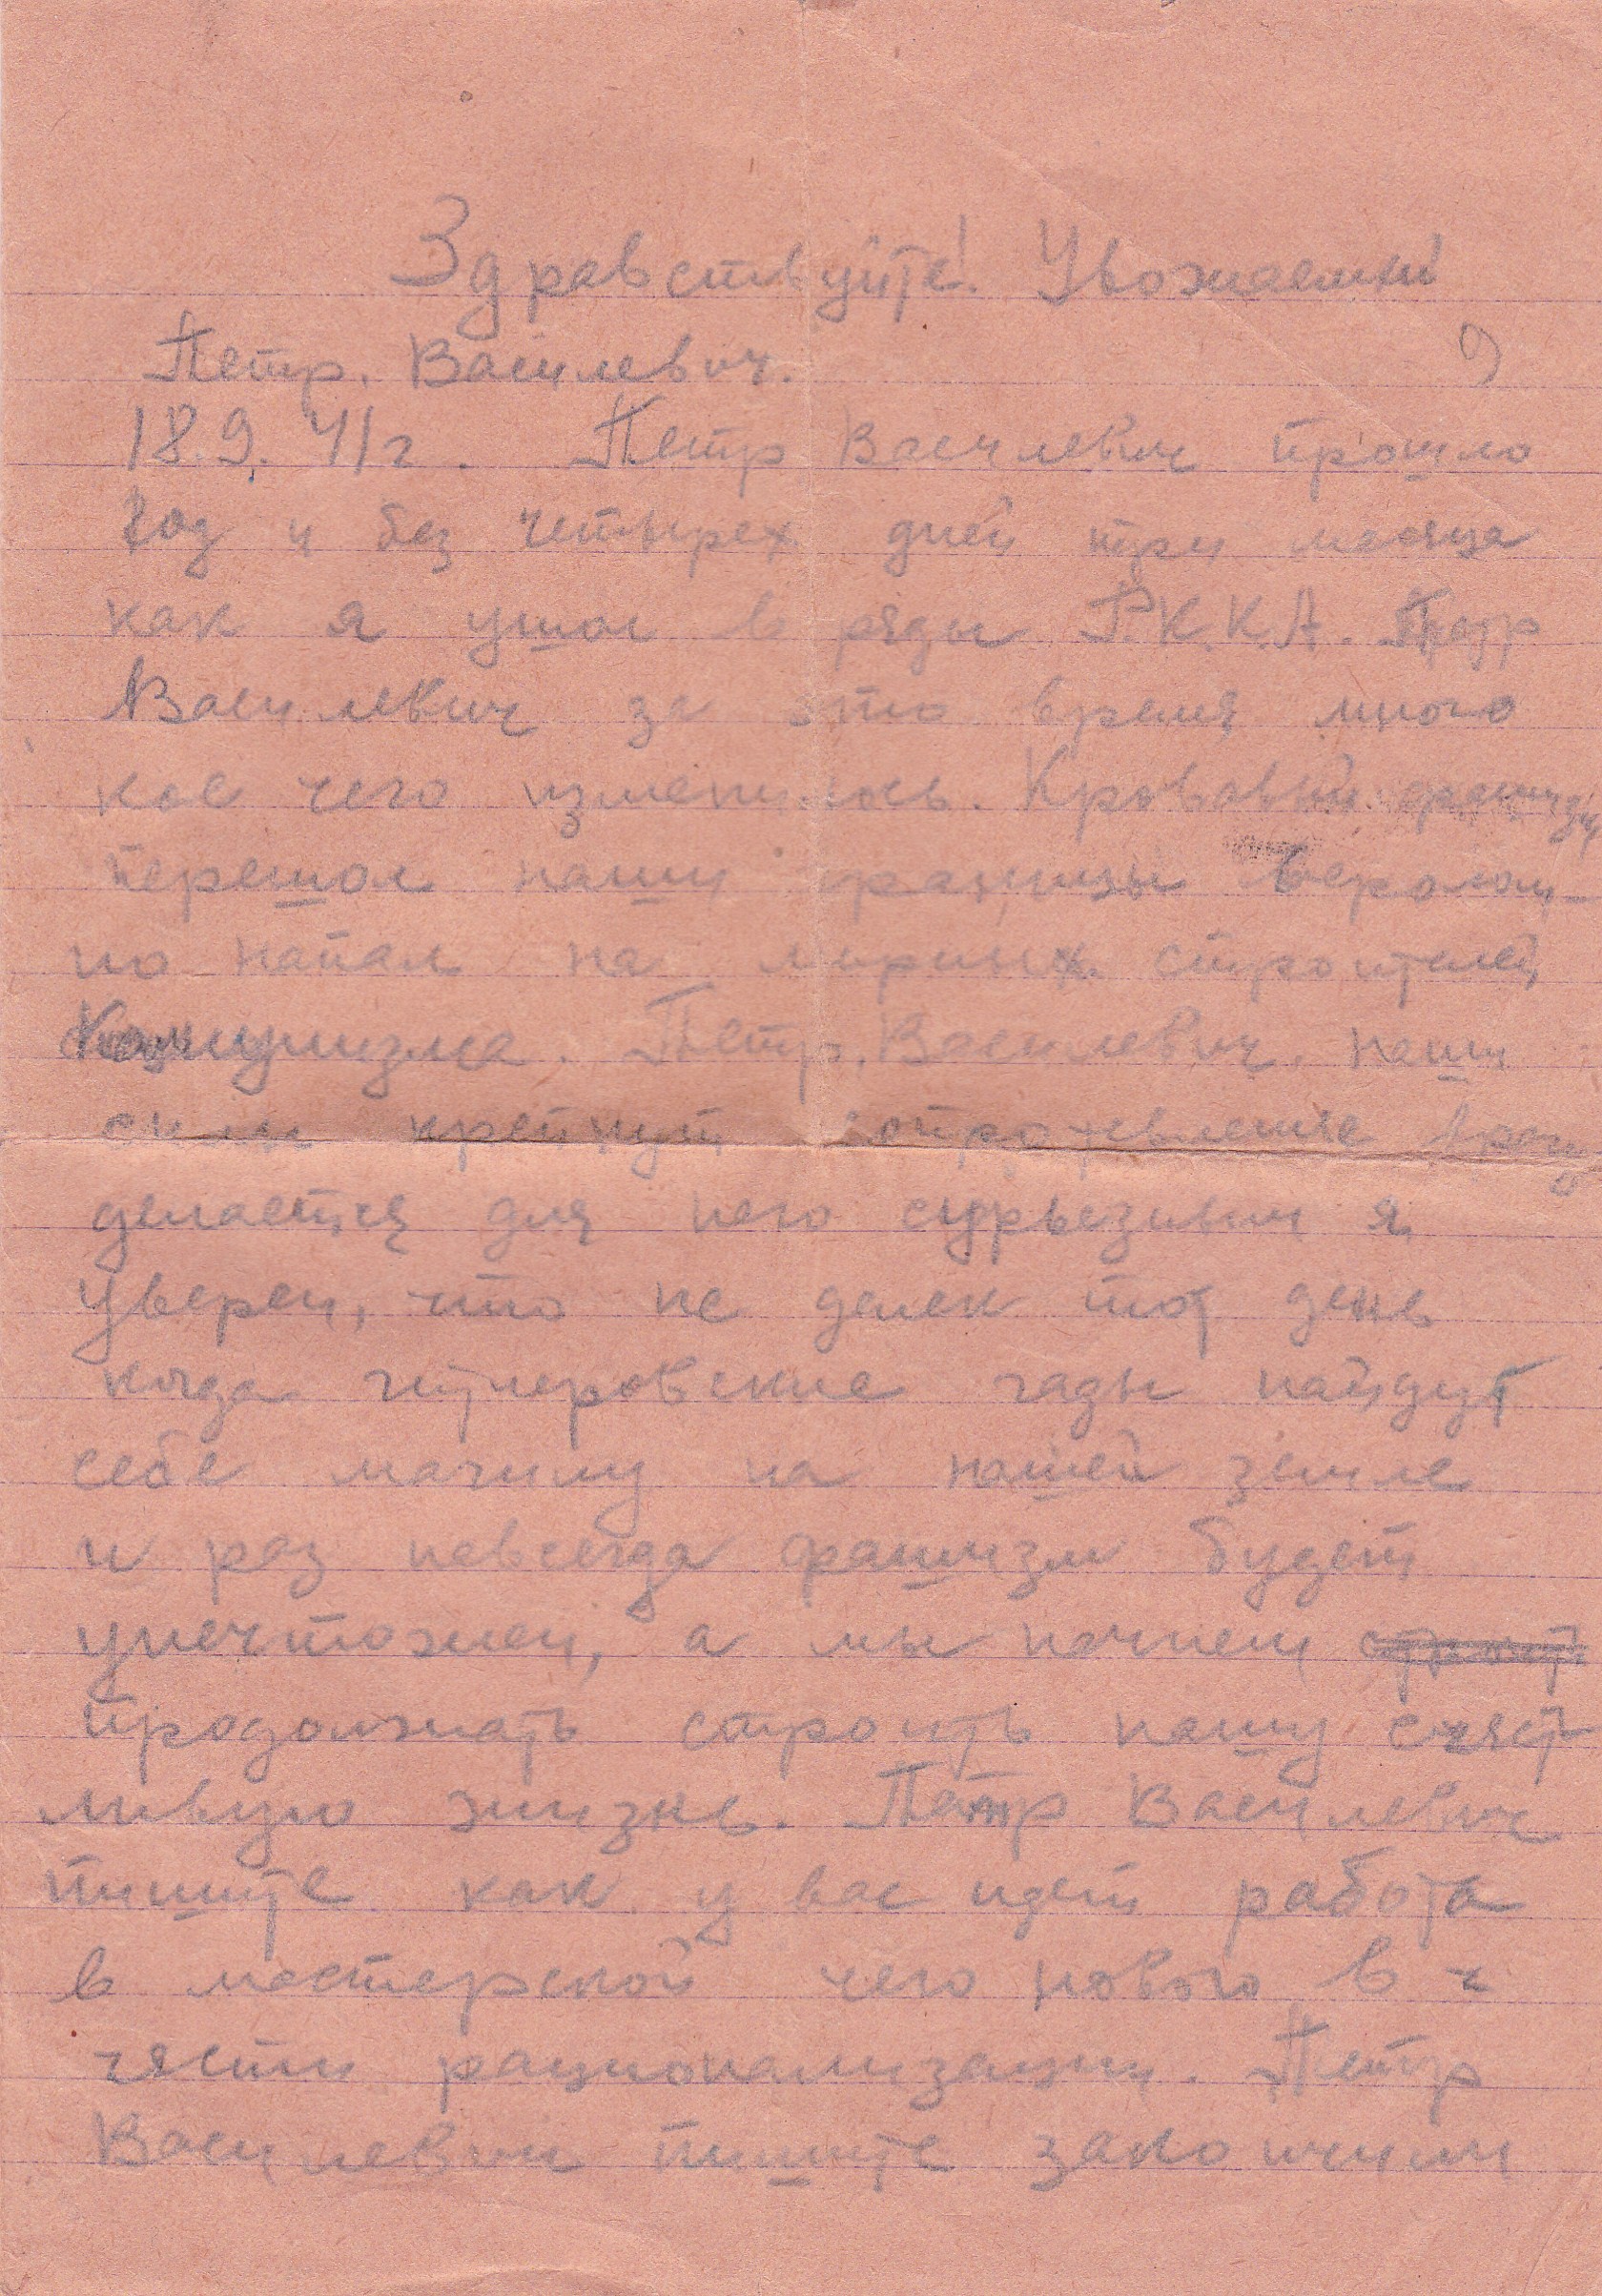 Здравствуйте! Уважаемый
9
Петр. Василевич.
18.9.41г. Петр Василевич прошло
год и без четырех дней три месяца
как я ушол в ряды Р.К.К.А. Петр
Василевич за это время много
кое чего изменилось. Кровавый фашизм
перешол наши границы веролом-
но напал на мирных строителей
Комунизма. Петр. Василевич. наши
силы крепнут сопротевление врагу
делается для него сурьезным я
уверен, что не далек тот день
когда гитлеровские гады найдут
себе магилу на нашей земле
и раз невсегда фашизм будет
унечтожен, а мы начнем
продолжать строить нашу счаст
ливую жизнь. Петр Василевич
пишите как у вас идет работа
в мастерской чего нового в ч
части рационализации. Петр
Василевич пишите закончили